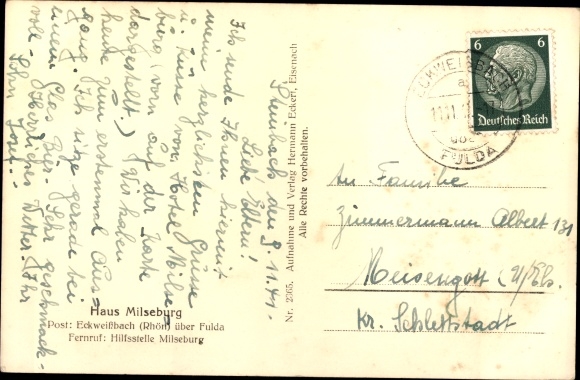 Steinbach den 9.11.41.
Liebe Eltern!
Ich sende Ihnen hiermit
meine herzlichsten Grüsse
u. Küsse vom Hotel Milse-
burg (vorn auf der Karte
dargestellt.) Wir haben
heute zum erstenmal Aus-
gang. Ich sitze gerade bei
einem Glas Bier. Sehr geschmack-
voll. Herrliches Wetter. Ihr
Sohn Josef.
Haus Milseburg
Post: Eckweißbach (Rhön) über Fulda
Fernruf: Hilfsstelle Milseburg
Nr. 2365. Aufnahme und Verlag Hermann Eckert, Eisenach
Alle Rechte vorbehalten.
6 6
Deutsches Reich
ECKWEISSBACH
a
11.11
FULDA
An Familie
Zimmermann Albert 131
Meisengott (U/Els.
Kr. Schlettstadt